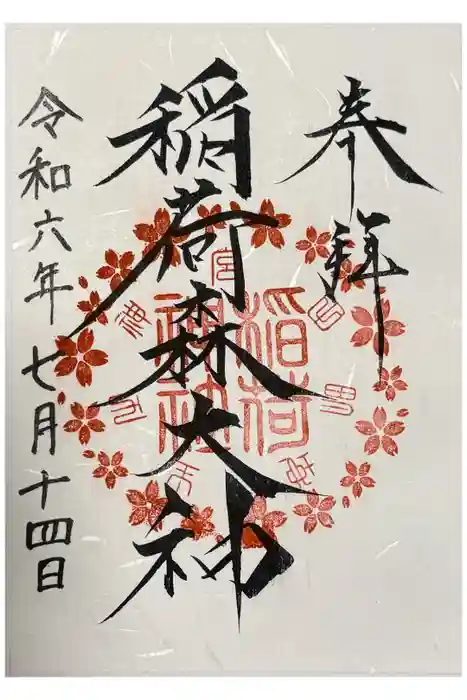 奉拝
稲荷森大神
令和六年七月十四日
稲荷
神社